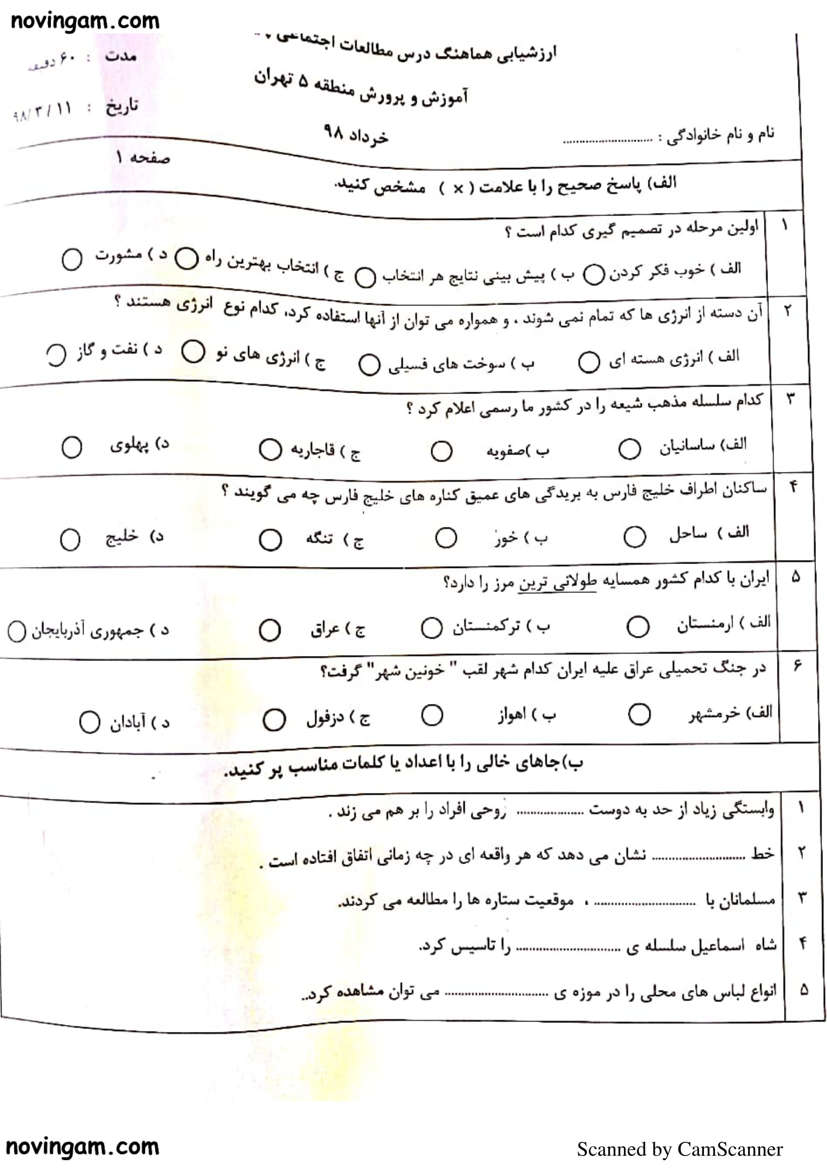 novingam.com
ارزشیابی هماهنگ درس مطالعات اجتماعی
مدت : ۶۰ دقیقه
آموزش و پرورش منطقه ۵ تهران
تاریخ : ۹۸/۳/۱۱
نام و نام خانوادگی : ............................
خرداد ۹۸
صفحه ۱
الف) پاسخ صحیح را با علامت ( × ) مشخص کنید.
۱ اولین مرحله در تصمیم گیری کدام است ؟
الف ) خوب فکر کردن ب ) پیش بینی نتایج هر انتخاب ج ) انتخاب بهترین راه د ) مشورت
۲ آن دسته از انرژی ها که تمام نمی شوند ، و همواره می توان از آنها استفاده کرد، کدام نوع انرژی هستند ؟
الف ) انرژی هسته ای ب ) سوخت های فسیلی ج ) انرژی های نو د ) نفت و گاز
۳ کدام سلسله مذهب شیعه را در کشور ما رسمی اعلام کرد ؟
الف) ساسانیان ب )صفویه ج ) قاجاریه د) پهلوی
۴ ساکنان اطراف خلیج فارس به بریدگی های عمیق کناره های خلیج فارس چه می گویند ؟
الف ) ساحل ب ) خور ج ) تنگه د) خلیج
۵ ایران با کدام کشور همسایه طولانی ترین مرز را دارد؟
الف ) ارمنستان ب ) ترکمنستان ج ) عراق د ) جمهوری آذربایجان
۶ در جنگ تحمیلی عراق علیه ایران کدام شهر لقب " خونین شهر" گرفت؟
الف) خرمشهر ب ) اهواز ج ) دزفول د ) آبادان
ب)جاهای خالی را با اعداد یا کلمات مناسب پر کنید.
۱ وابستگی زیاد از حد به دوست .................... روحی افراد را بر هم می زند .
۲ خط ............................ نشان می دهد که هر واقعه ای در چه زمانی اتفاق افتاده است .
۳ مسلمانان با .............................. ، موقعیت ستاره ها را مطالعه می کردند.
۴ شاه اسماعیل سلسله ی ............................... را تاسیس کرد.
۵ انواع لباس های محلی را در موزه ی ............................... می توان مشاهده کرد..
novingam.com
Scanned by CamScanner